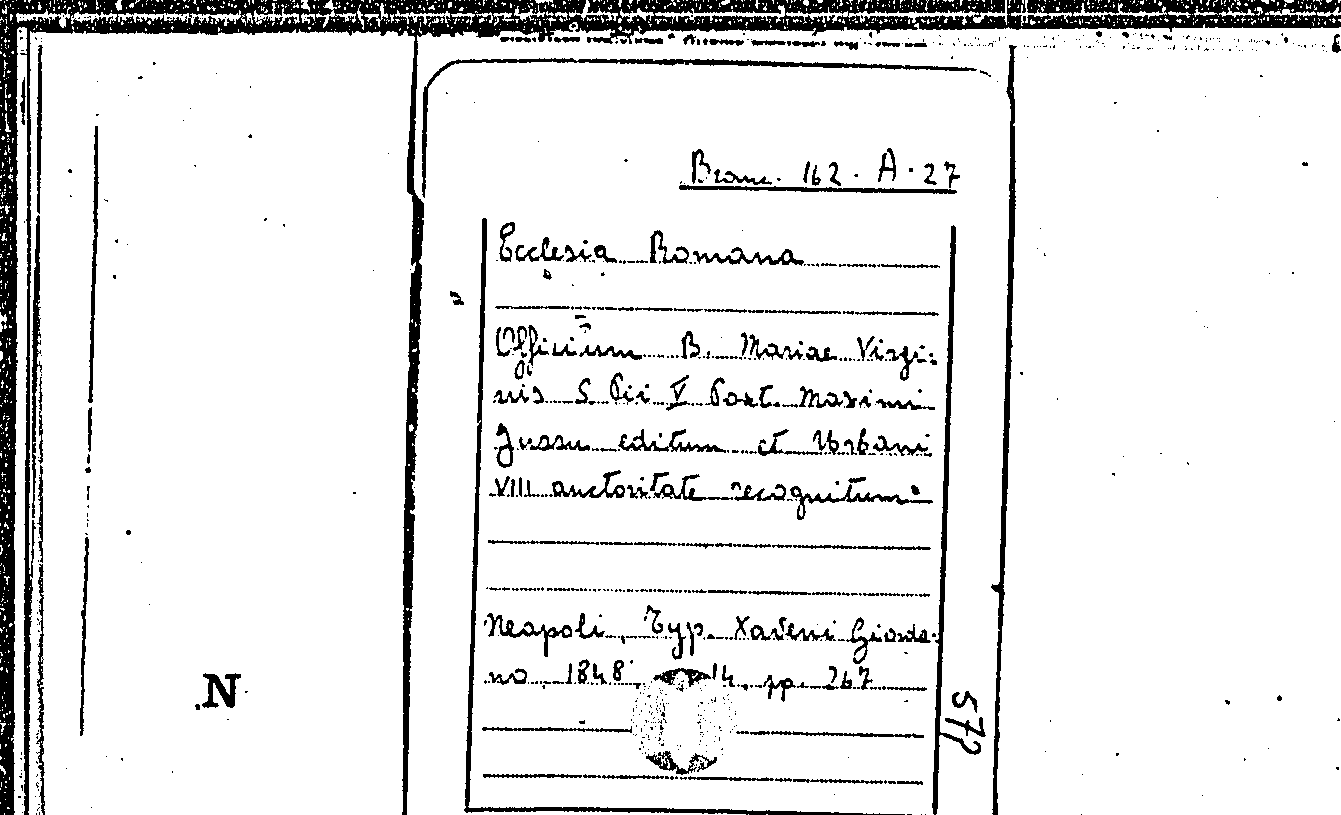 Branc. 162. A. 27
Ecclesia Romana
Officium B. Mariae Virgi:
nis S. Pii V Pont. Maximi
Jussu editum et Urbani
VIII auctoritate recognitum.
Neapoli, Typ. Xaveni Giorda:
no, 1848, 14, pp. 267
572
N